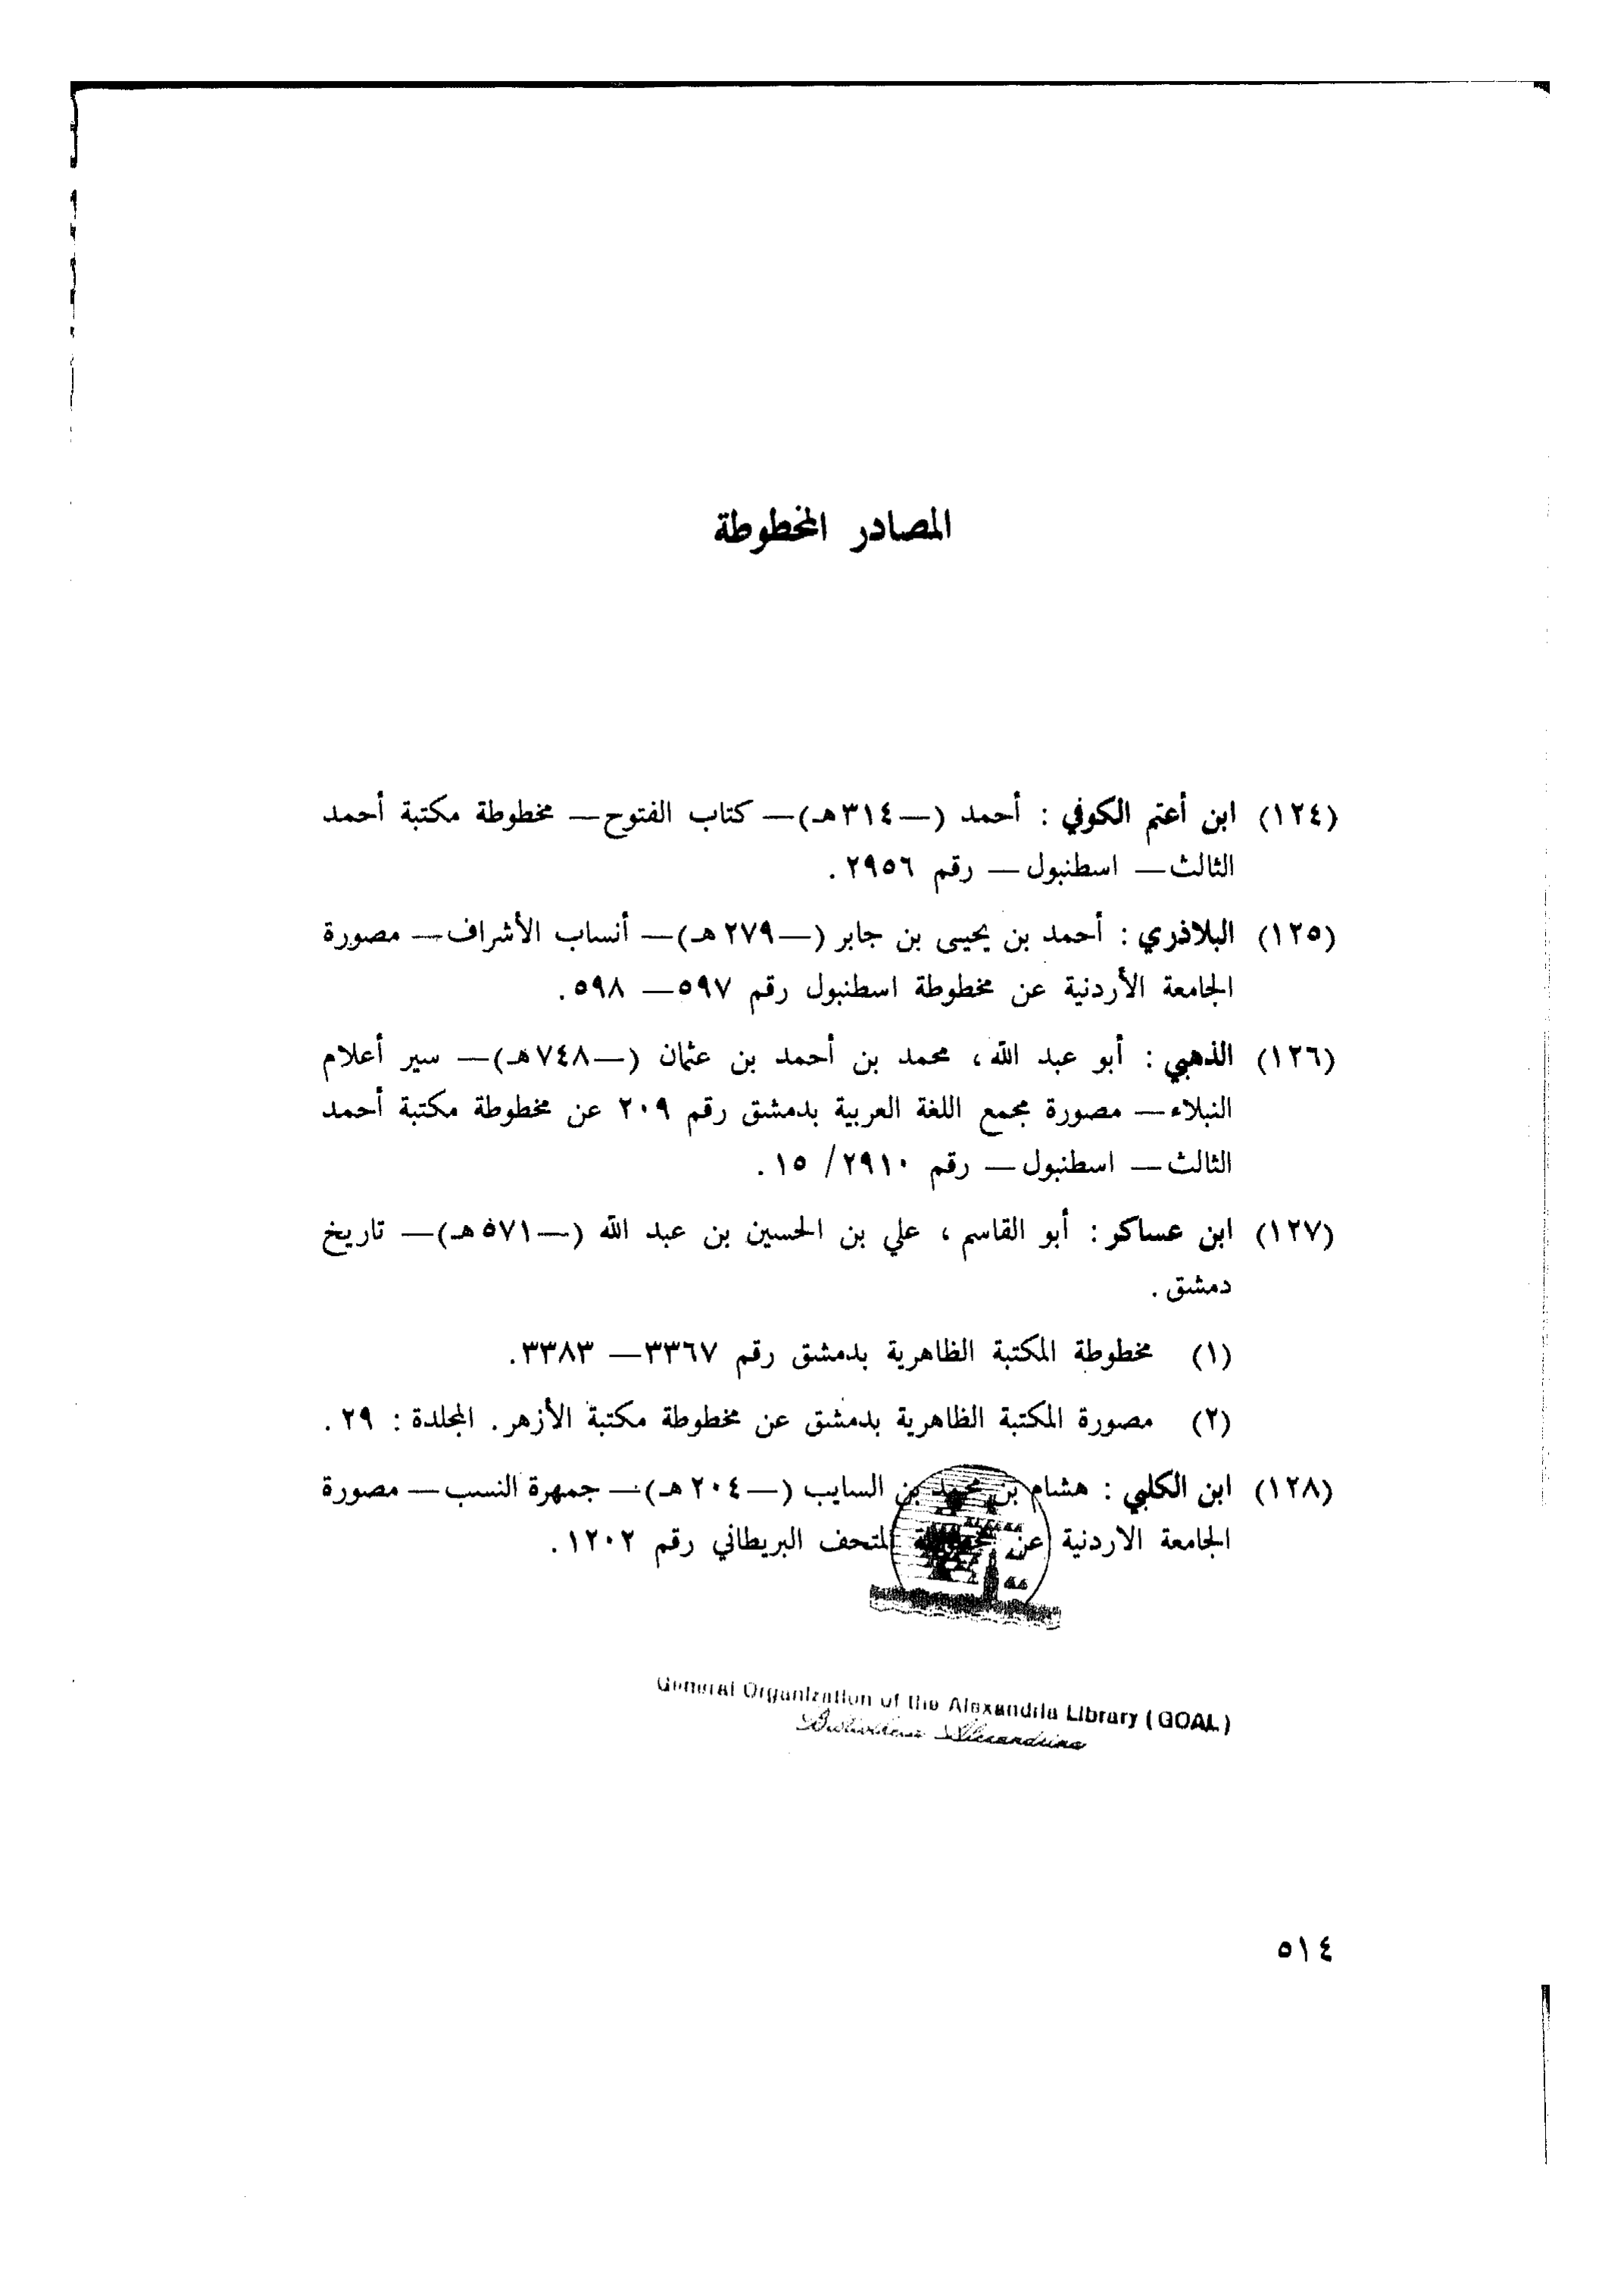 المصادر المخطوطة
(١٢٤) ابن أعتم الكوفي : أحمد (—٣١٤هـ)— كتاب الفتوح— مخطوطة مكتبة أحمد
الثالث— اسطنبول— رقم ٢٩٥٦.
(١٢٥) البلاذري : أحمد بن يحيى بن جابر (—٢٧٩هـ)— أنساب الأشراف— مصورة
الجامعة الأردنية عن مخطوطة اسطنبول رقم ٥٩٧— ٥٩٨.
(١٢٦) الذهبي : أبو عبد الله، محمد بن أحمد بن عثمان (—٧٤٨هـ)— سير أعلام
النبلاء— مصورة مجمع اللغة العربية بدمشق رقم ٢٠٩ عن مخطوطة مكتبة أحمد
الثالث— اسطنبول— رقم ٢٩١٠/ ١٥.
(١٢٧) ابن عساكر : أبو القاسم، علي بن الحسين بن عبد الله (—٥٧١هـ)— تاريخ
دمشق.
(١) مخطوطة المكتبة الظاهرية بدمشق رقم ٣٣٦٧— ٣٣٨٣.
(٢) مصورة المكتبة الظاهرية بدمشق عن مخطوطة مكتبة الأزهر. المجلدة : ٢٩.
(١٢٨) ابن الكلبي : هشام بن محمد بن السايب (—٢٠٤هـ)— جمهرة النسب— مصورة
الجامعة الاردنية عن مخطوطة المتحف البريطاني رقم ١٢٠٢.
General Organization of the Alexandria Library (GOAL)
Bibliotheca Alexandrina
٥١٤